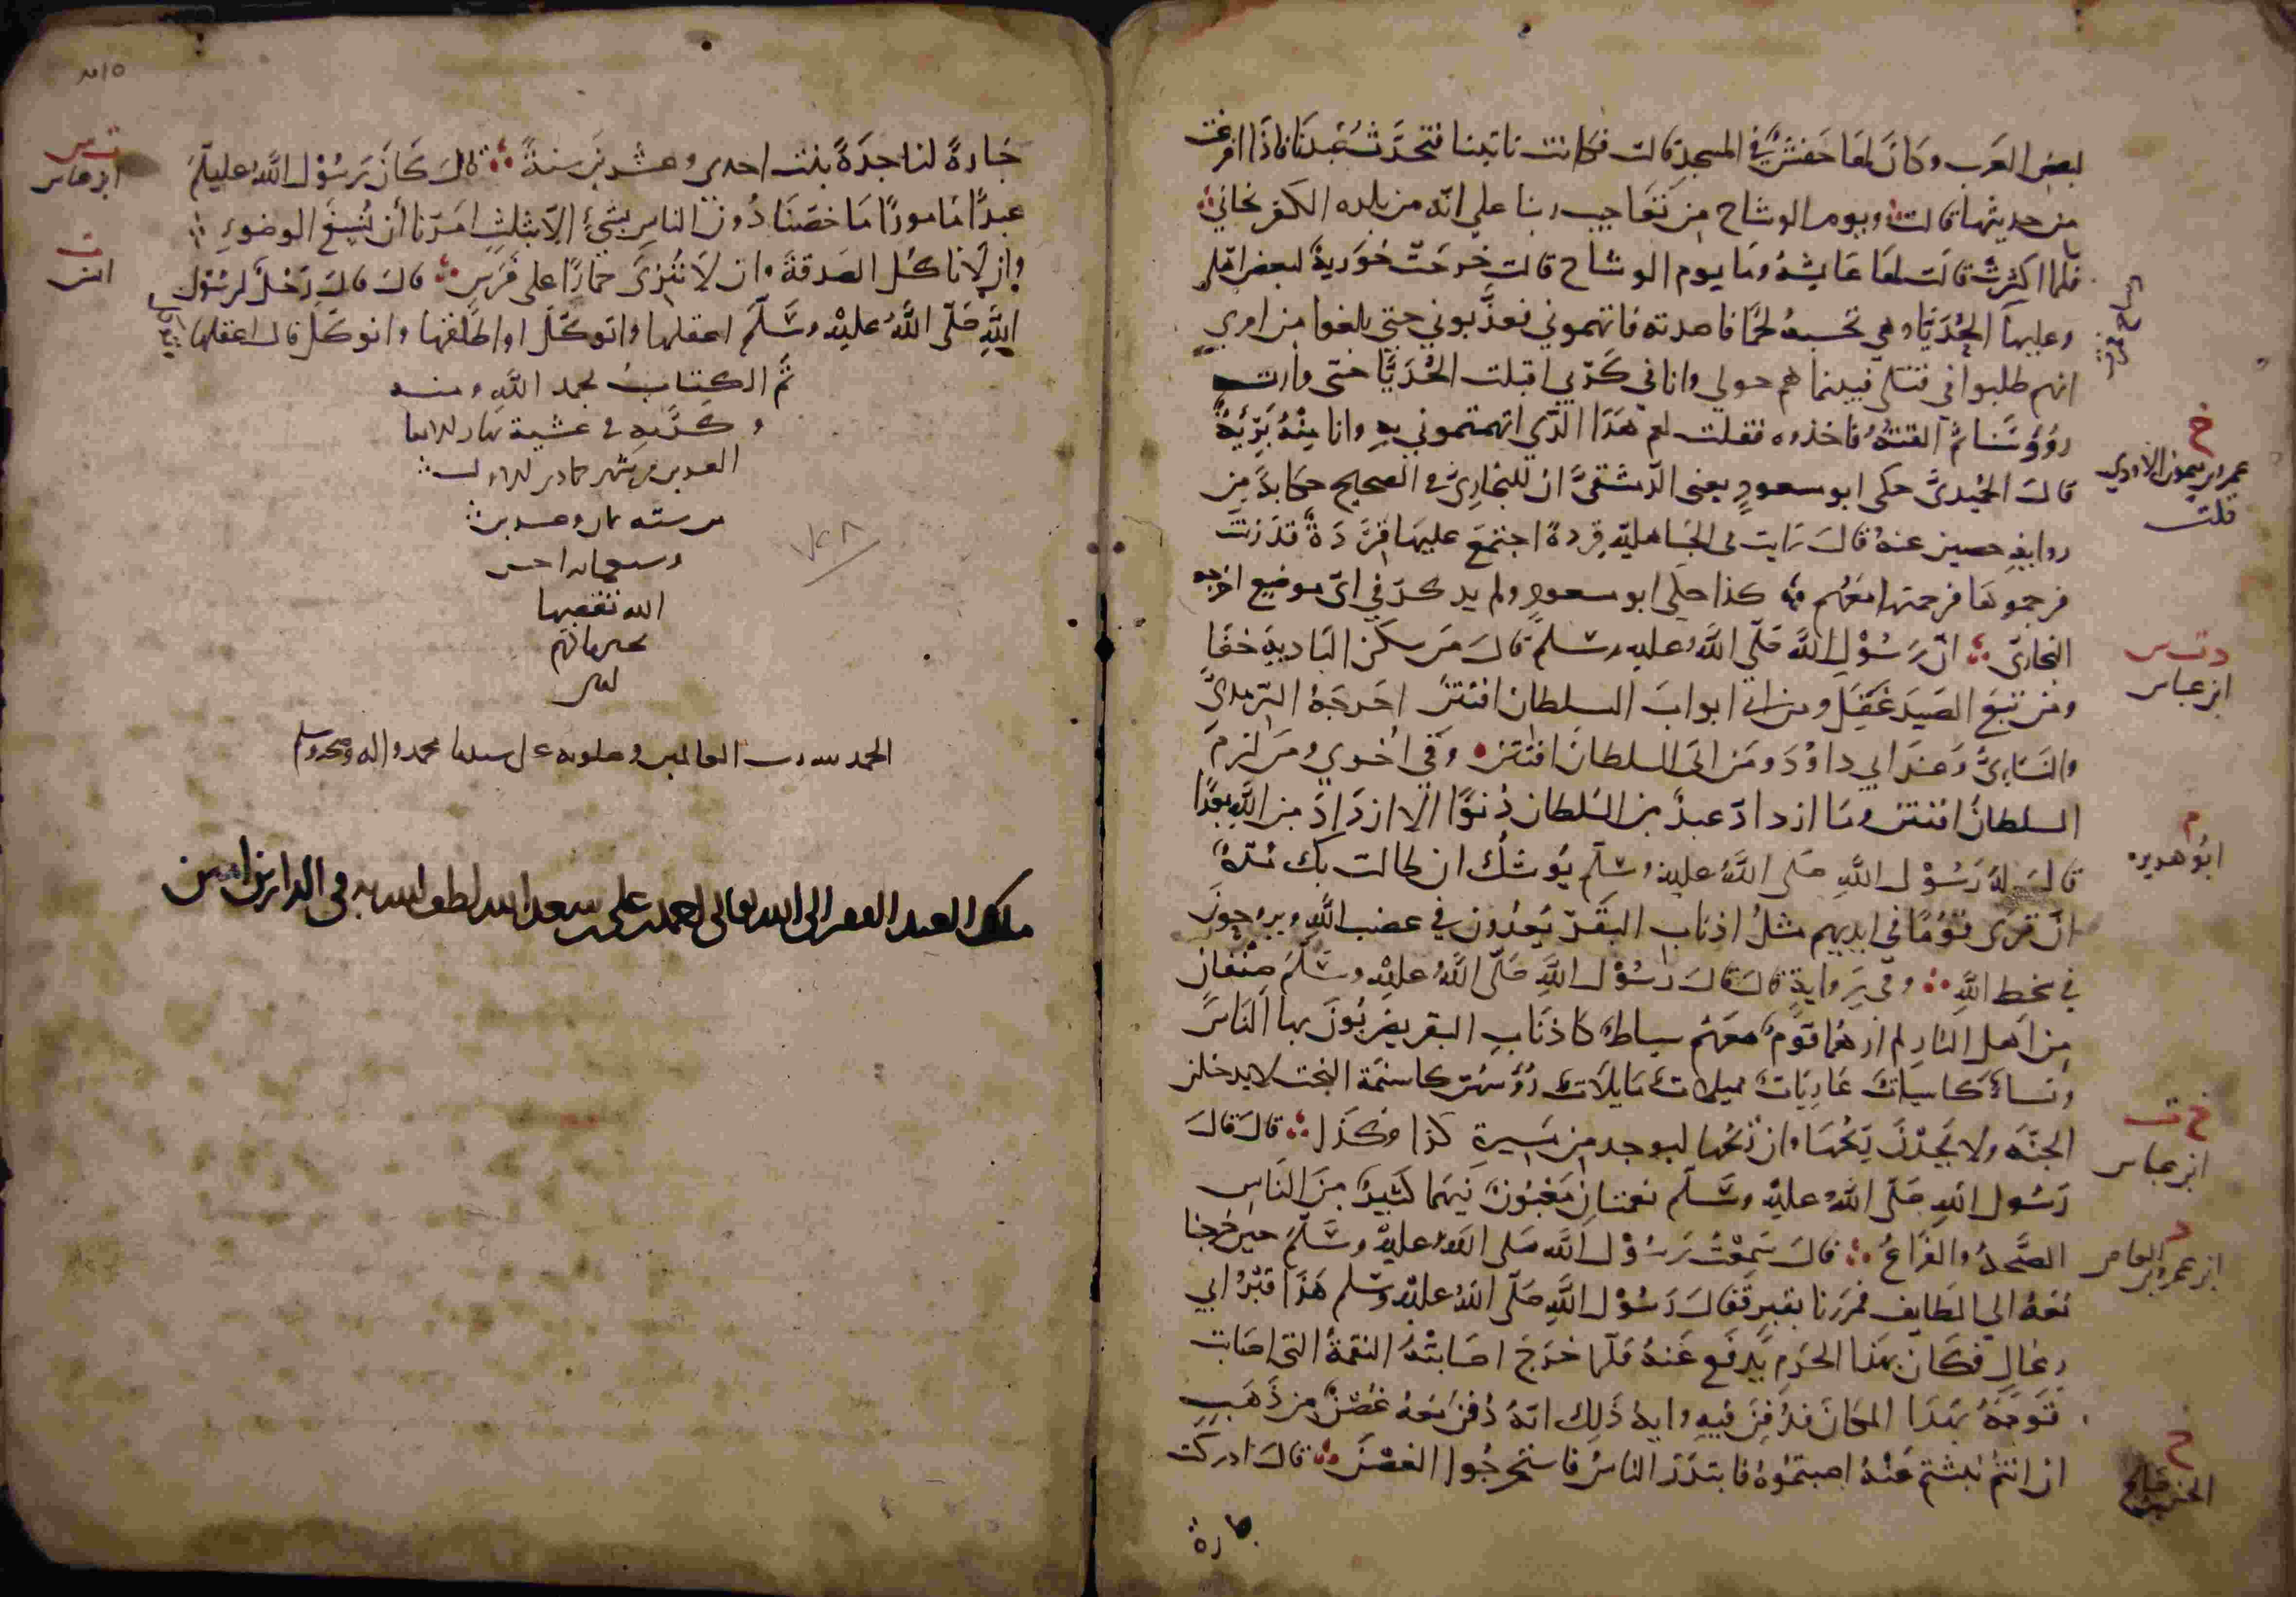 لبعض العرب وكان لها حفش في المسجد قالت فكانت تاتينا فتحدث عندنا فاذا افرغت
من حديثها قالت ويوم الوشاح من تعاجيب ربنا على انه من بلده الكفر نجاني
فلما اكثرت قالت لها عايشة وما يوم الوشاح قالت خرجت جويرية لبعض اهلي
وعليها الحديا وهي تحسبه لحما فاخذته فاتهموني فعذبوني حتى بلغوا من امري
انهم طلبوا في قبلي فبينما هم حولي وانا في كربي اقبلت الحديا حتى وازت
رؤوسنا ثم القته فاخذوه فقلت لهم هذا الذي اتهمتموني به وانا منه بريئة
قال الحميدي حكى ابو مسعود يعني الدمشقي ان للبخاري في الصحيح حكاية من
رواية حصين عنه قال رايت في الجاهلية قردة اجتمع عليها قردة قد زنت
فرجموها فرجمتها معهم كذا حكى ابو مسعود ولم يذكر في اي موضع اخرجه
البخاري ان رسول الله صلى الله عليه وسلم قال من سكن البادية جفا
ومن تبع الصيد غفل ومن اتى ابواب السلطان افتتن اخرجه الترمذي
والنسايي وعند ابي داود ومن اتى السلطان افتتن وفي اخرى ومن لزم
السلطان افتتن وما ازداد عبد من السلطان دنوا الا ازداد من الله بعدا
قال له رسول الله صلى الله عليه وسلم يوشك ان طالت بك مدة
ان ترى قوما في ايديهم مثل اذناب البقر يغدون في غضب الله ويروحون
في سخط الله وفي رواية قال قال رسول الله صلى الله عليه وسلم صنفان
من اهل النار لم ارهما قوم معهم سياط كاذناب البقر يضربون بها الناس
ونساء كاسيات عاريات مميلات مايلات رؤسهن كاسنمة البخت لا يدخلن
الجنة ولا يجدن ريحها وان ريحها ليوجد من مسيرة كذا وكذا قال قال
رسول الله صلى الله عليه وسلم نعمتان مغبون فيهما كثير من الناس
الصحة والفراغ قال سمعت رسول الله صلى الله عليه وسلم حين خرجنا
معه الى الطايف فمررنا بقبر فقال رسول الله صلى الله عليه وسلم هذا قبر ابي
رغال فكان بهذا الحرم يدفع عنه فلما خرج اصابته النقمة التي اصابت
قومه بهذا المكان فدفن فيه واية ذلك انه دفن معه غصن من ذهب
ان انتم نبشتم عنه اصبتموه فابتدر الناس فاستخرجوا الغصن قال ادركت
جارة
خ
عمرو بن ميمون الاودي
قلت
د ت س
ابن عباس
م
ابو هريرة
خ ت
ابن عباس
د
ابن عمرو بن العاص
خ
جارة لنا جدة بنت احدى وعشرين سنة قال كان رسول الله عليه
عبدا مامورا ما خصنا دون الناس بشيء الا بثلث امرنا ان نسبغ الوضوء
وان لا ناكل الصدقة وان لا ننزي حمارا على فرس قال قال رجل لرسول
الله صلى الله عليه وسلم اعقلها واتوكل او اطلقها واتوكل قال اعقلها
ت س
ابن عباس
ت
انس
تم الكتاب بحمد الله ومنه
وكرمه في عشية نهار الاربعا
العشرين من شهر جمادى الاول
الله تقضيها
بخير
الحمد لله رب العالمين وصلوته على سيدنا محمد واله وصحبه وسلم
ملك العبد الفقير الى الله تعالى احمد بن علي بن سعد الله لطف الله به في الدارين امين